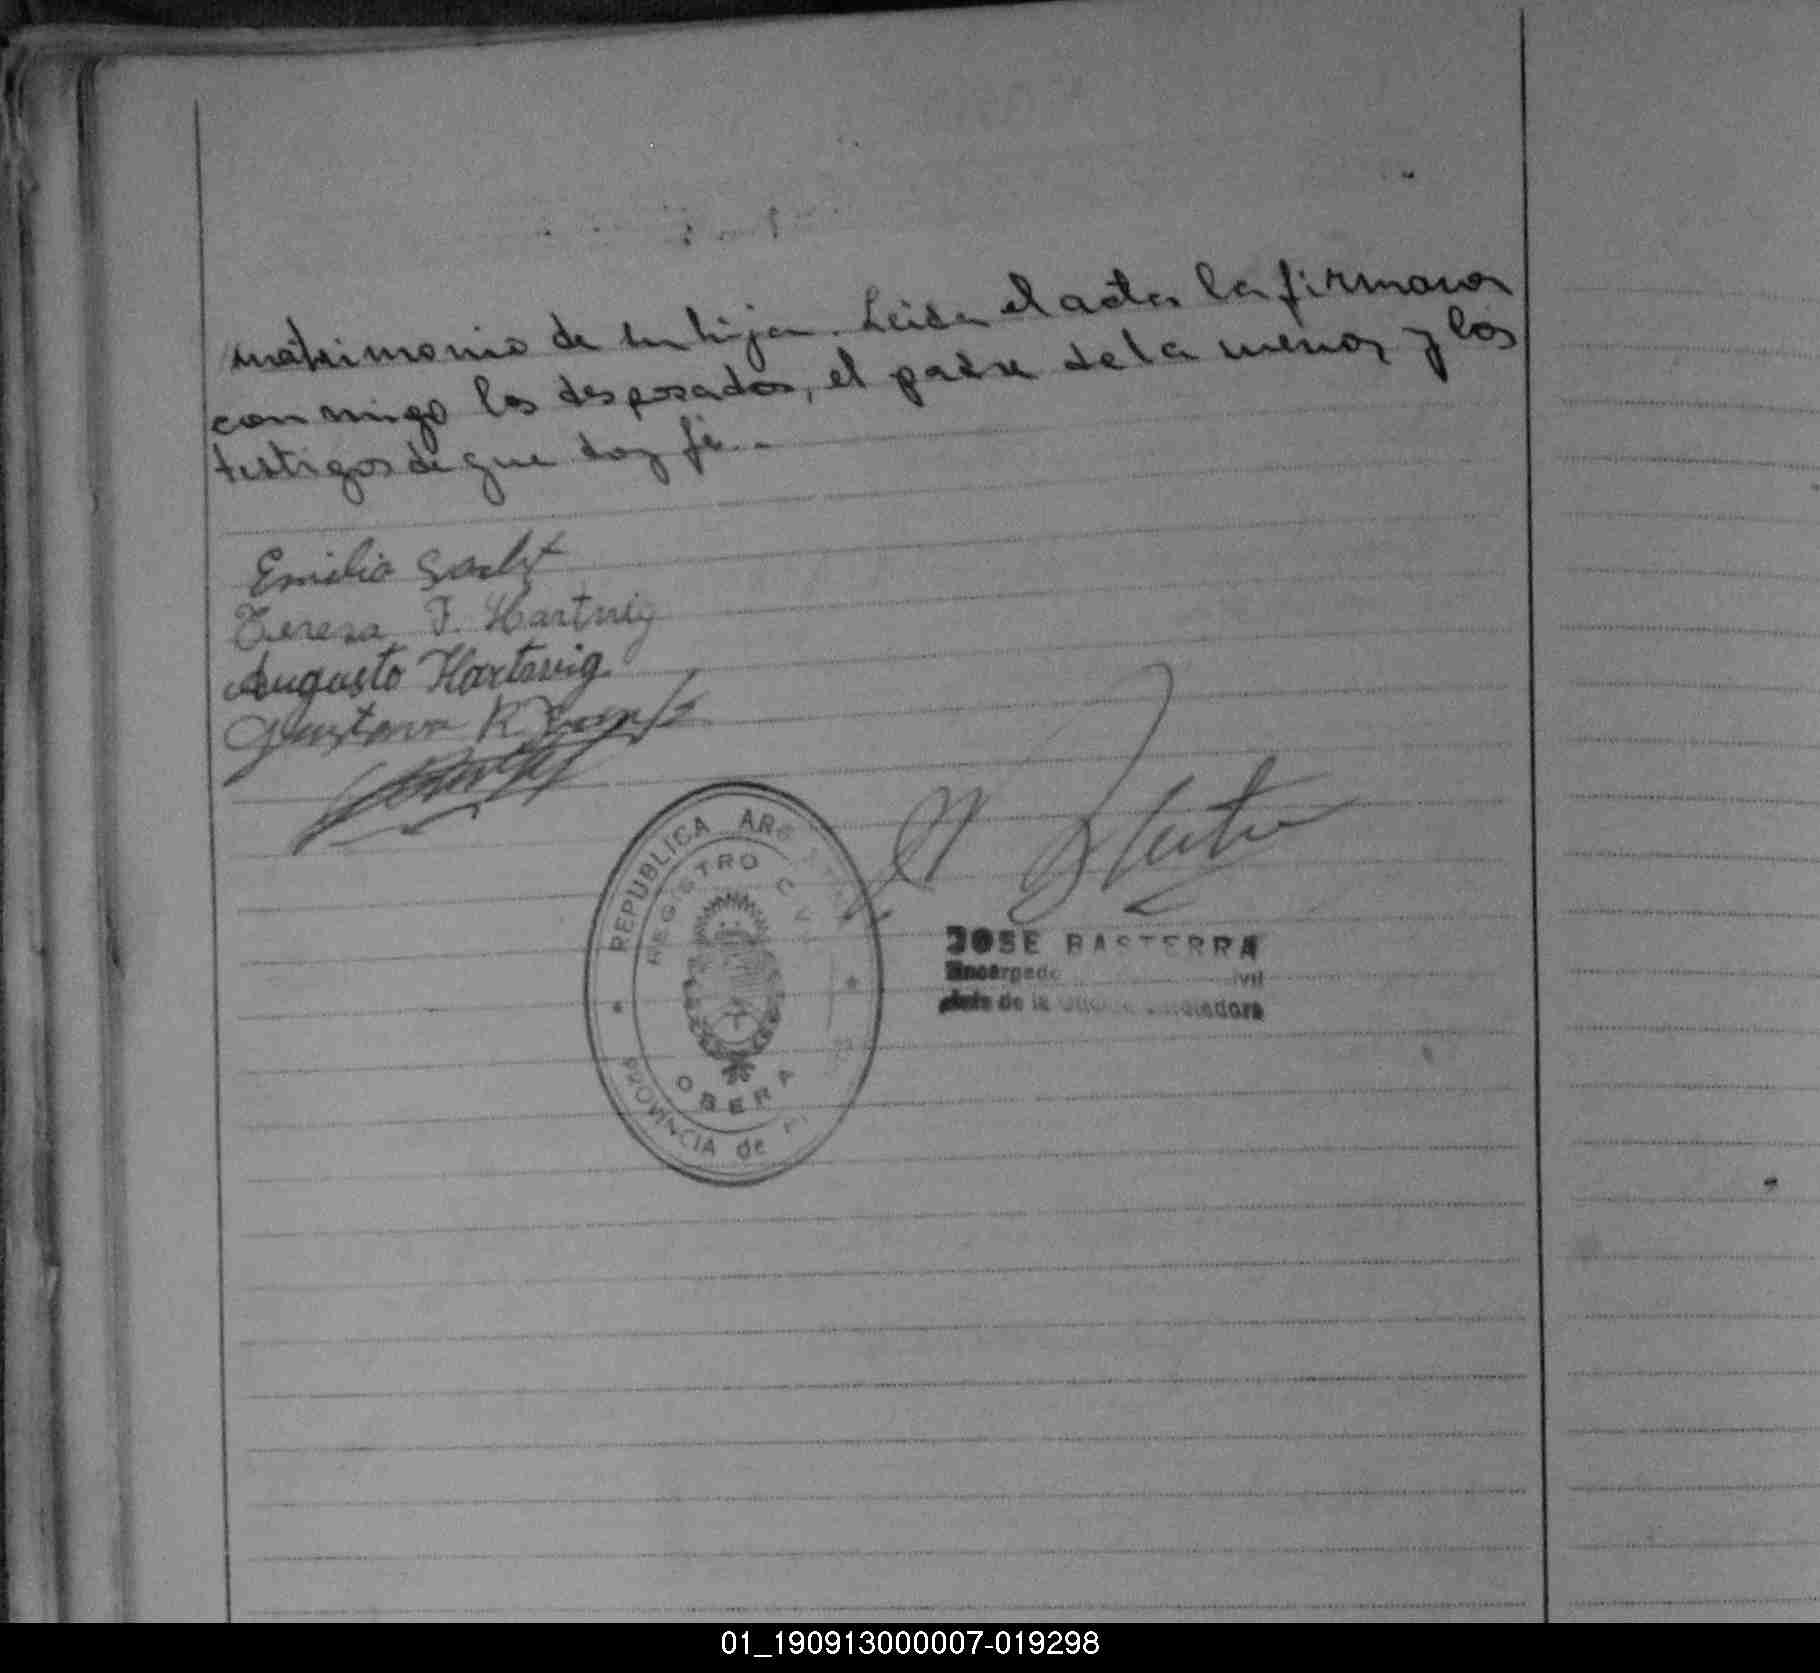 matrimonio de su hija. Leida el acta la firmaron
conmigo los desposados, el padre de la menor y los
testigos de que doy fé..
Emilio
Teresa F. Hartwig
Augusto Hartwig
Gustavo R.
REPUBLICA ARG
REGISTRO CIVI
OBERA
PROVINCIA de
JOSE BASTERRA
Encargado ivil
Jefe de la
01_190913000007-019298